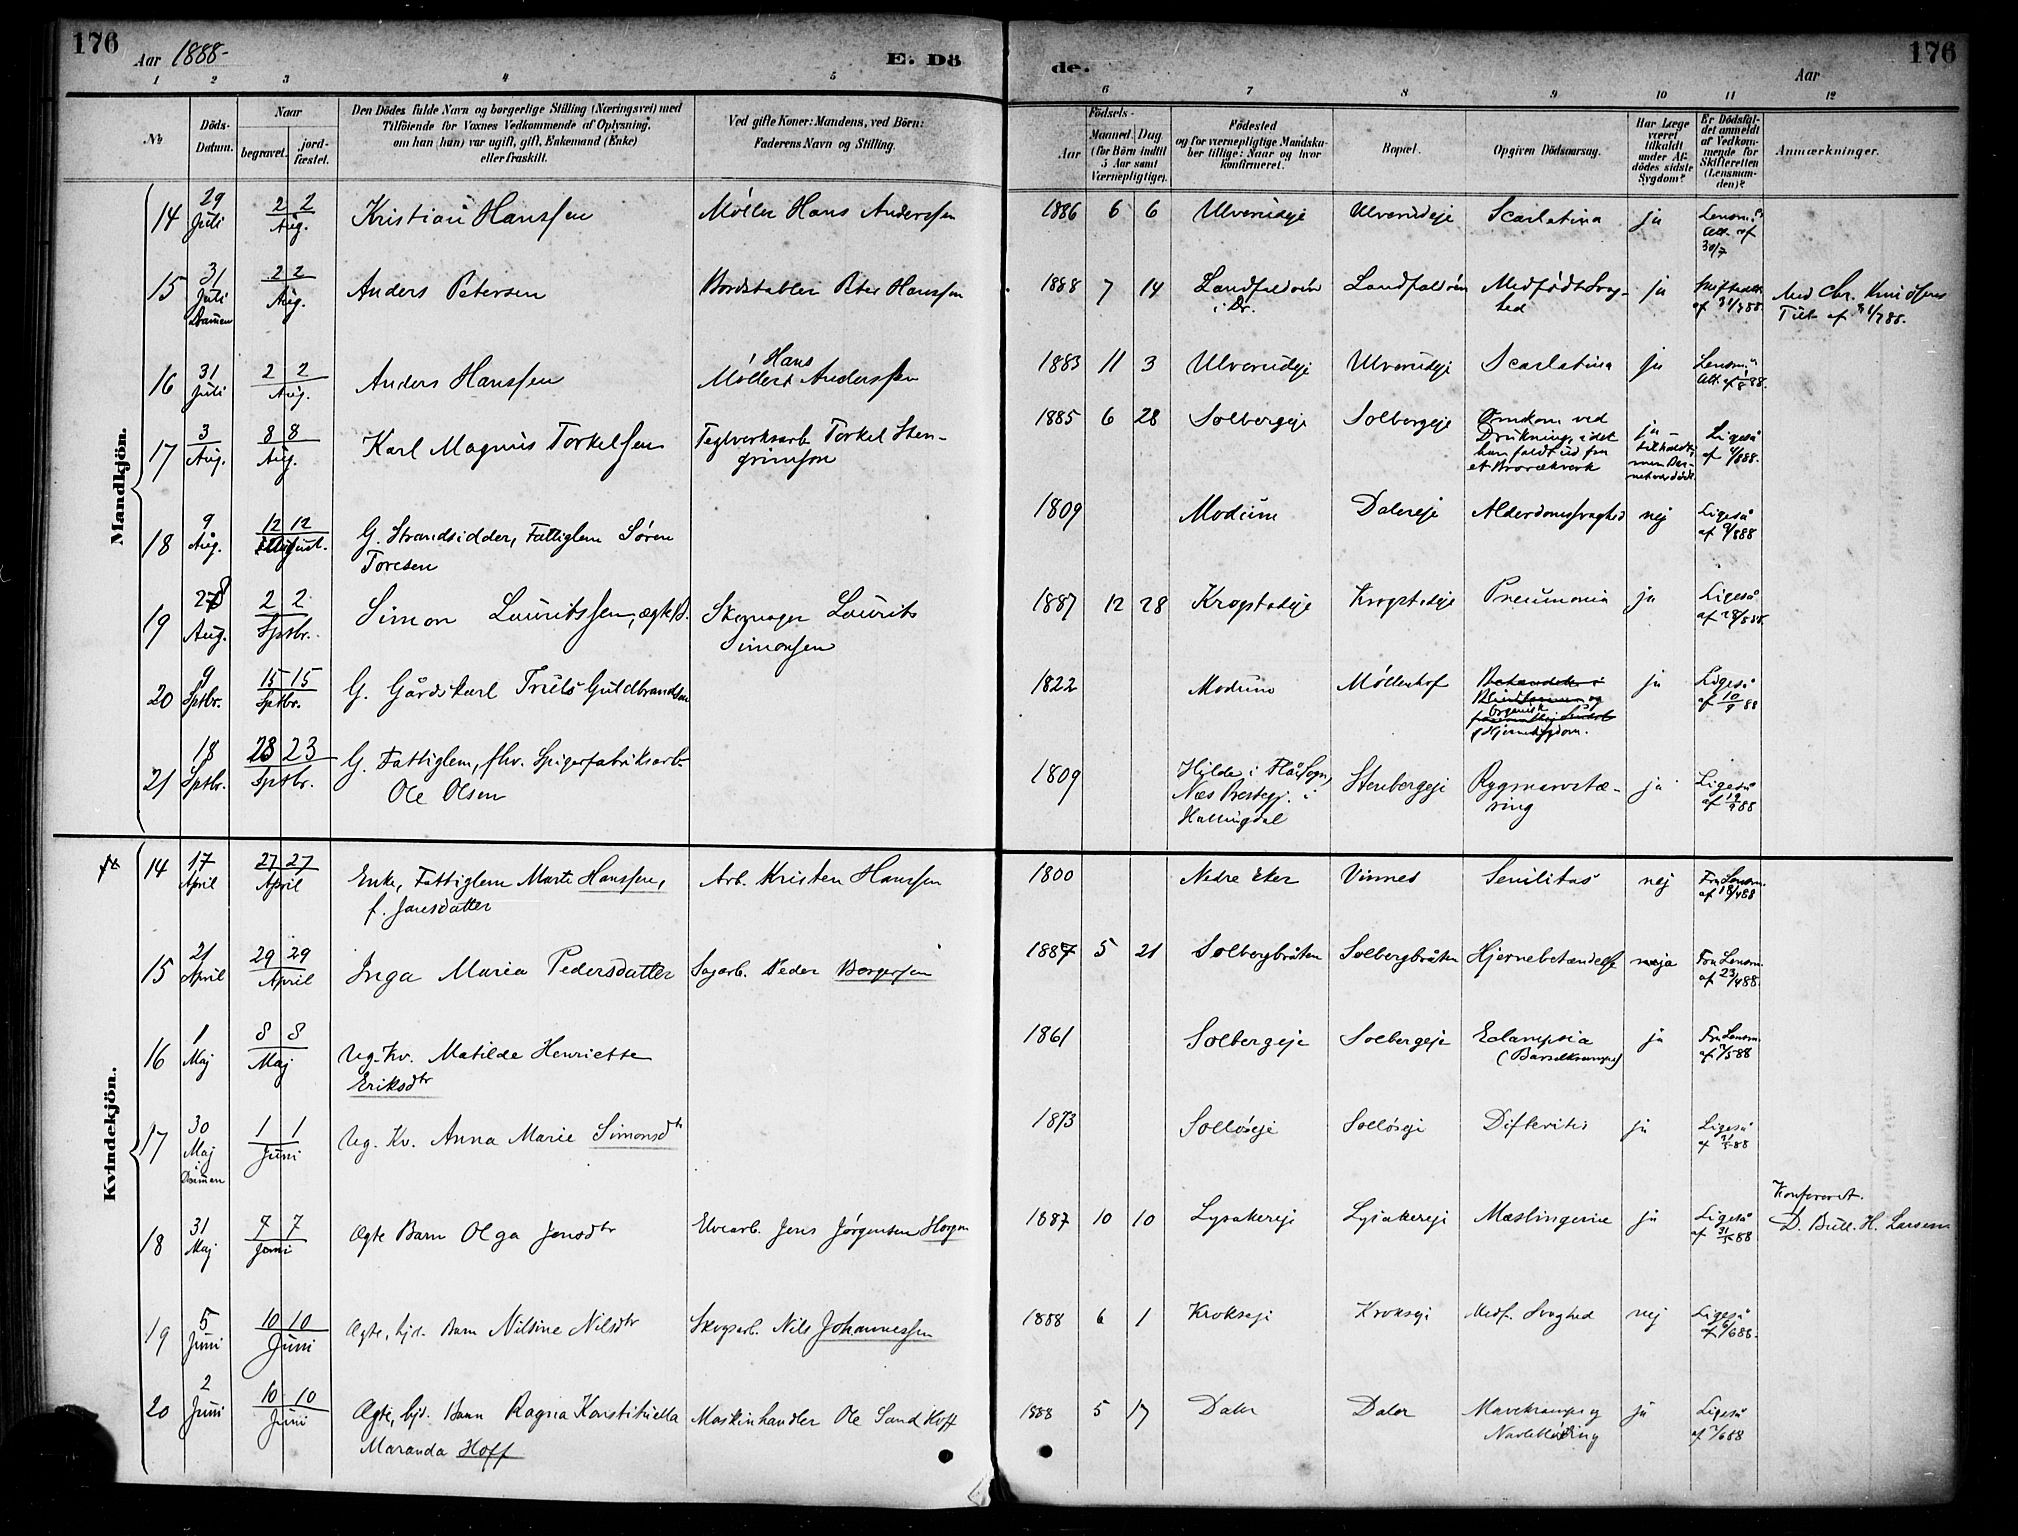 176
Aar 1888-
E. Dö
de.
Aar
176
1 2 3 4 5 6 7 8 9 10 11 12
№
Döds-
Datum.
Naar
begravet.
jord-
fæstet.
Den Dödes fulde Navn og borgerlige Stilling (Næringsvei) med
Tilföiende for Voxnes Vedkommende af Oplysning,
om han (hun) var ugift, gift, Enkemand (Enke)
eller fraskilt.
Ved gifte Koner: Mandens, ved Börn:
Faderens Navn og Stilling.
Födsels-
Aar
Maaned.
Dag
(for Börn indtil
5 Aar samt
Værnepligtige).
Födested
og for værnepligtige Mandska-
ber tillige: Naar og hvor
konfirmeret.
Bopæl.
Opgiven Dödsaarsag.
Har Læge
været
tilkaldt
under Af-
dödes sidste
Sygdom?
Er Dödsfal-
det anmeldt
af Vedkom-
mende for
Skifteretten
(Lensman-
den)?
Anmærkninger.
Mandkjön.
14 29 Juli 2 2 Aug. Kristian Hanssen Møller Hans Anderssen 1886 6 6 Ulverudeje Ulverudeje Scarlatina ja Lensm.s
Att. af
30/7
15 31 Juli Dramen 2 2 Aug. Anders Petersen Bordstabler Peter Hanssen 1888 7 14 Landfaldøen Landfaldøen Medfødt Svag- ja
i Dr. hed af 31/788. Tilt. af 31/788.
16 31 Juli 2 2 Aug. Anders Hanssen Møller Hans Anderssen 1883 11 3 Ulverudeje Ulverudeje Scarlatina ja Lensm.s
Att. af 1/8 88.
17 3 Aug. 8 8 Aug. Karl Magnus Torkelsen Teglverksarb. Torkel Sten-
grimson 1885 6 28 Solbergeje Solbergeje Omkom ved
Drukning, idet
han faldt ud fra
et Brorækverk ja -
tilkaldt, Ligeså
af 4/888.
18 9 Aug. 12 12 August. G. Strandsidder, Fattiglem Søren
Toresen 1809 Modum Dalereje Alderdomssvaghed nej Ligeså
af 9/888
19 28 Aug. 2 2 Sptbr. Simon Lauritssen, ægte B. Skomager Laurits
Simonsen 1887 12 28 Krogstadeje Krogstadeje Pneumonia ja Ligeså
af 28/888.
20 9 Sptbr. 15 15 Sptbr. G. Gårdskarl Truls Guldbrandsen 1822 Modum Møllenhof
Organisk
Hjernesygdom. ja Ligeså
af 10/9 88
21 18 Sptbr. 23 23 Sptbr. G. Fattiglem, fhv. Spigerfabriksarb.
Ole Olsen 1809 Hilde i Flå Sogn,
Næs Prestegj. i
Hallingdal Stenbergeje Rygmarvstæ-
ring ja Ligeså
af 19/9 88
Kvindekjön.
14 17 April 27 27 April Enke, Fattiglem Marte Hanssen,
f. Jansdatter Arb. Kristen Hanssen 1800 Nedre Eker Vinnes Senilitas nej Fra Lensm.
af 18/488
15 21 April 29 29 April Inga Maria Pedersdatter Sagarb. Peder Borgersen 1887 5 21 Solbergbråten Solbergbråten Hjernebetændelse ja Fra Lensm.
af 23/488.
16 1 Maj 8 8 Maj Ug. Kv. Matilde Henriette
Eriksdtr 1861 Solbergeje Solbergeje Eclampsia
(Barselkrampe) ja Fra Lensm.
af 2/588
17 30 Maj Dramen 1 1 Juni Ug. Kv. Anna Marie Simonsdtr 1873 Solløseje Solløseje Difteritis ja Ligeså
af 31/5 88
18 31 Maj 7 7 Juni Ægte Barn Olga Jensdtr Elvearb. Jens Jørgensen Horgen 1887 10 10 Lysakereje Lysakereje Mæslingerne ja Ligeså
af 31/5 88 Konfereret.
19 5 Juni 10 10 Juni Ægte, hjd. Barn Nilsine Nilsdtr Skogsarb. Nils Johannessen 1888 6 1 Krokseje Krokseje Medf. Svaghed nej Ligeså
af 6/688.
20 2 Juni 10 10 Juni Ægte, hjd. Barn Ragna Konstituella
Maranda Hoff Maskinhandler Ole Sand Hoff 1888 5 17 Daler Daler Mavekrampe og
Navleblødning ja Ligeså
af 2/688